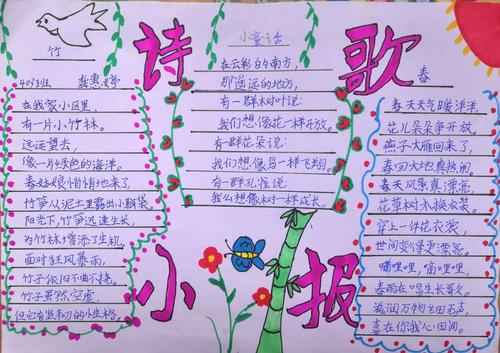 诗歌小报
竹
在我家小区里
有一片小竹林。
远远望去，
像一片绿色的海洋。
春姑娘悄悄地来了
竹笋从泥土里露出小脑袋
阳光下，竹笋迅速生长，
为竹林增添了生机。
面对狂风暴雨，
竹子依旧不曲不挠。
竹子虽然空虚
小童话
在云彩的南方，
那遥远的地方，
有一群树叶说：
我们想像花一样开放。
有一群花朵说：
我们想像鸟一样飞翔。
有一群孔雀说：
我们想像树一样成长。
春
春天天气暖洋洋
花儿朵朵争开放，
燕子大雁回来了，
春回大地真热闹。
春天风景真漂亮，
花草树木换衣裳。
穿上一件花衣裳，
世间变得更漂亮。
嘀哩哩，嘀哩哩，
春雨在唱生长喜歌
滋润万物